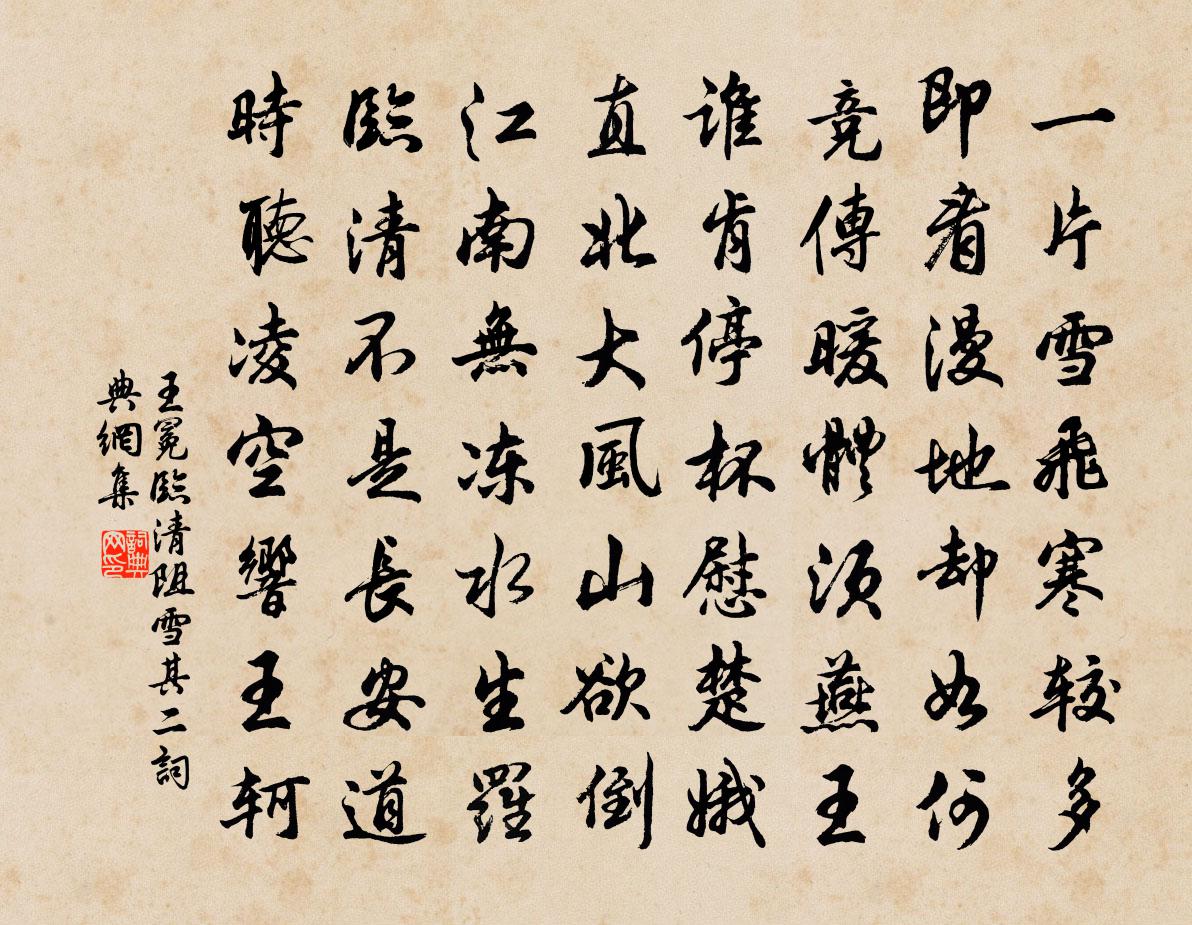 一片雪飛寒較多
即看漫地却如何
竞傳暖體須燕王
誰肯停杯慰楚娥
直北大風山欲倒
江南無凍水生羅
臨清不是長安道
時聽凌空響王軻
王冕臨清阻雪其二詞
典網集
詞典网印